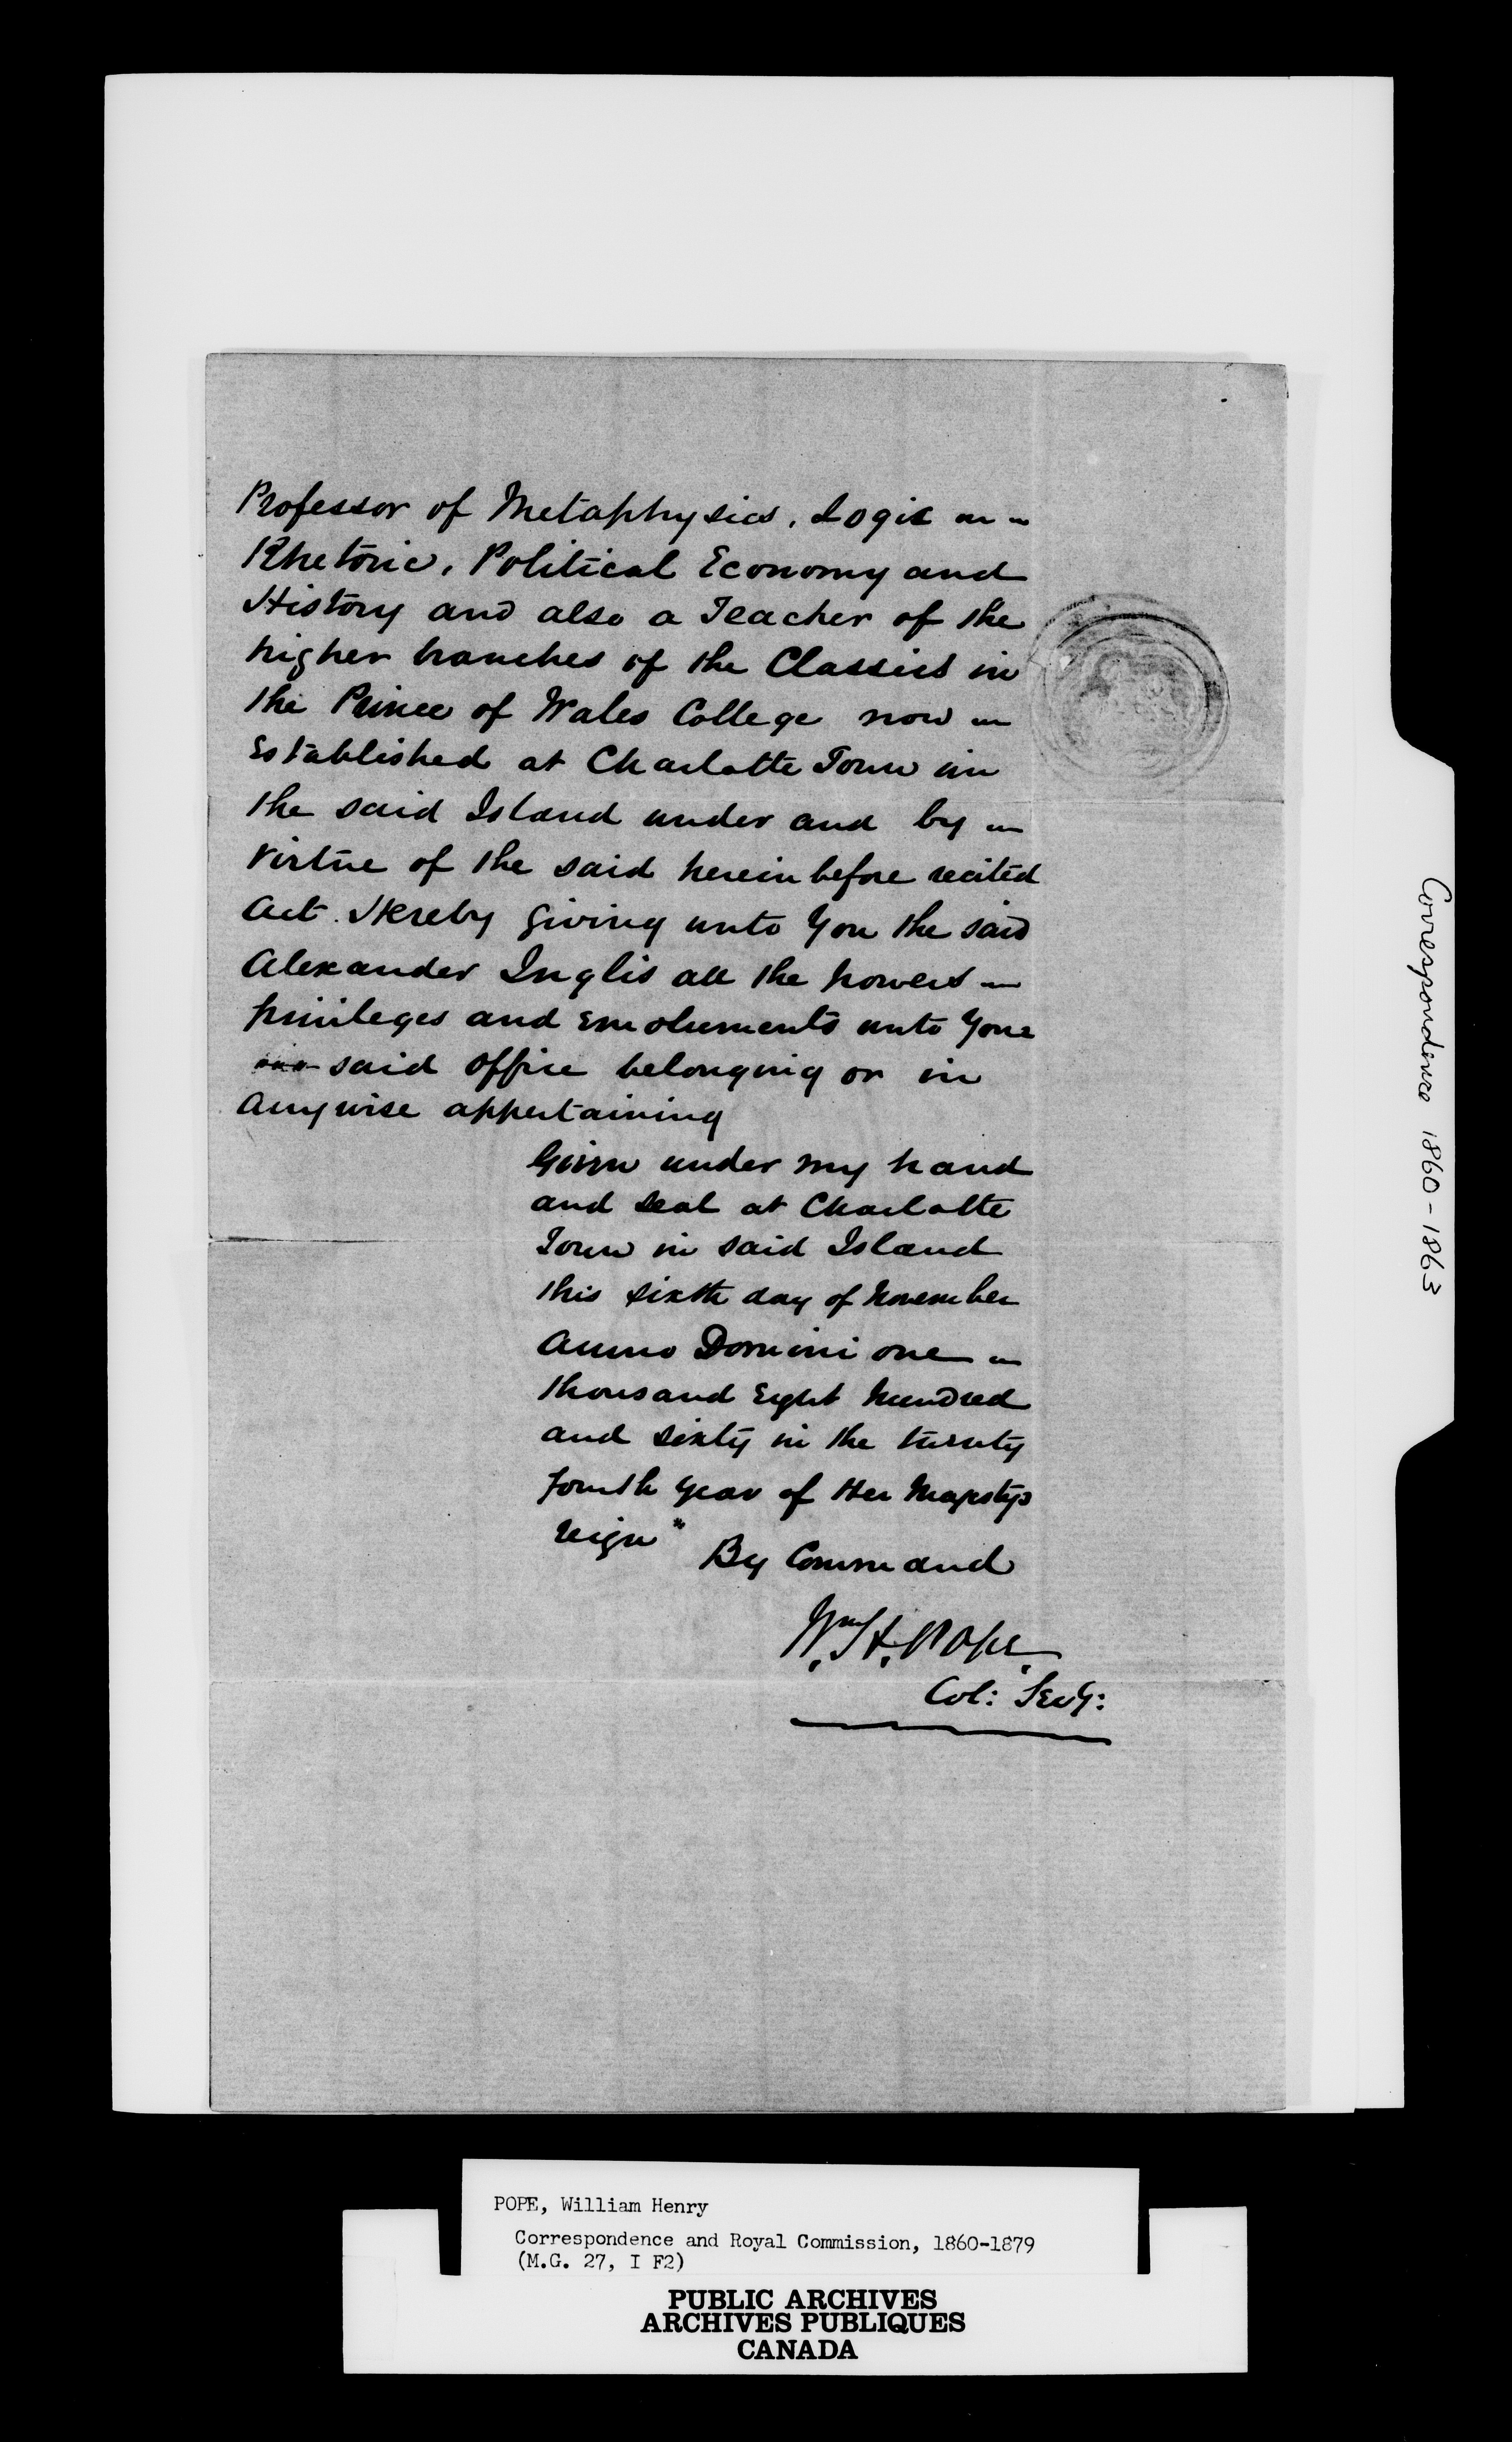 Professor of Metaphysics, Logic
Rhetoric, Political Economy and
History and also a Teacher of the
higher branches of the Classics in
the Prince of Wales College now
Established at Charlotte Town in
the said Island under and by
virtue of the said herein before recited
Act. Hereby giving unto You the said
Alexander Inglis all the powers
privileges and emoluments unto Your
said office belonging or in
anywise appertaining
Given under my hand
and seal at Charlotte
Town in said Island
this sixth day of November
Anno Domini one
thousand Eight hundred
and sixty in the twenty
fourth year of Her Majestys
reign"
By Command
Wm. H. Pope.
Col: Secy:
Correspondence 1860-1863
POPE, William Henry
Correspondence and Royal Commission, 1860-1879
(M.G. 27, I F2)
PUBLIC ARCHIVES
ARCHIVES PUBLIQUES
CANADA